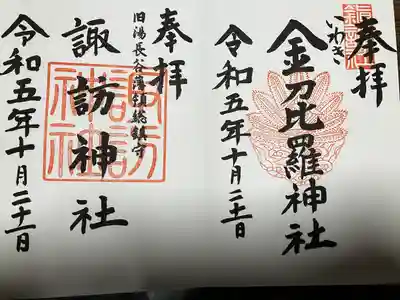 奉拝
いわき
金刀比羅神社
令和五年十月二十一日
奉拝
旧湯長谷藩領総鎮守
諏訪神社
諏訪神社
令和五年十月二十一日